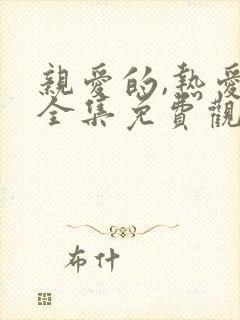 親愛的,熱愛
全集免費觀
布什